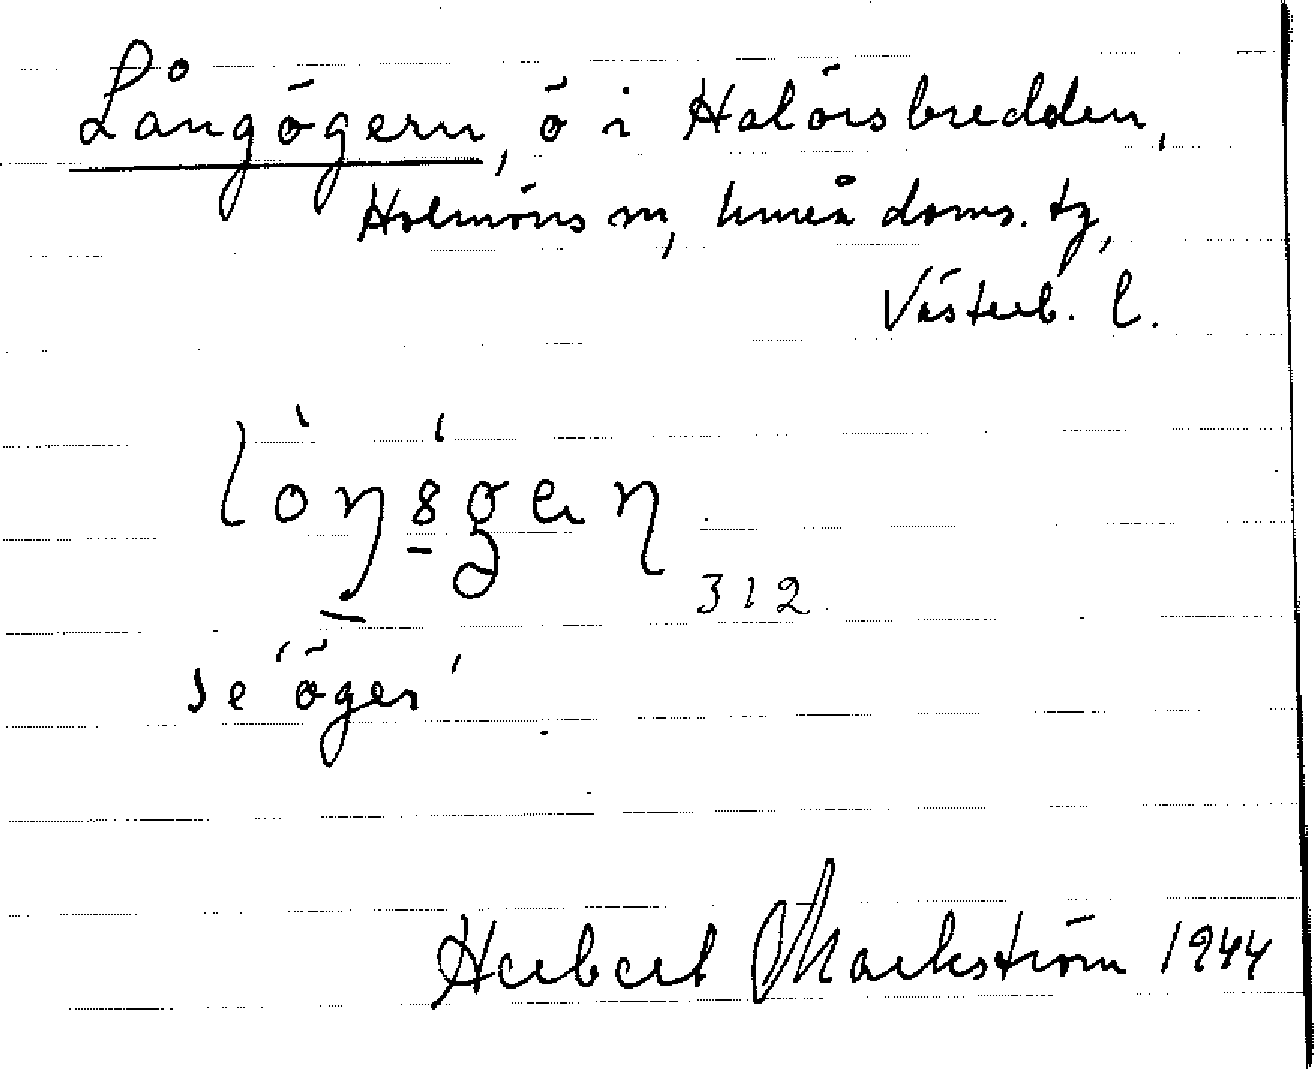 Långögern, ö i Halörsbredden,
Holmöns sn, Umeå doms. tg,
Västerb. l.
312
se 'öger'
Herbert Markström 1944